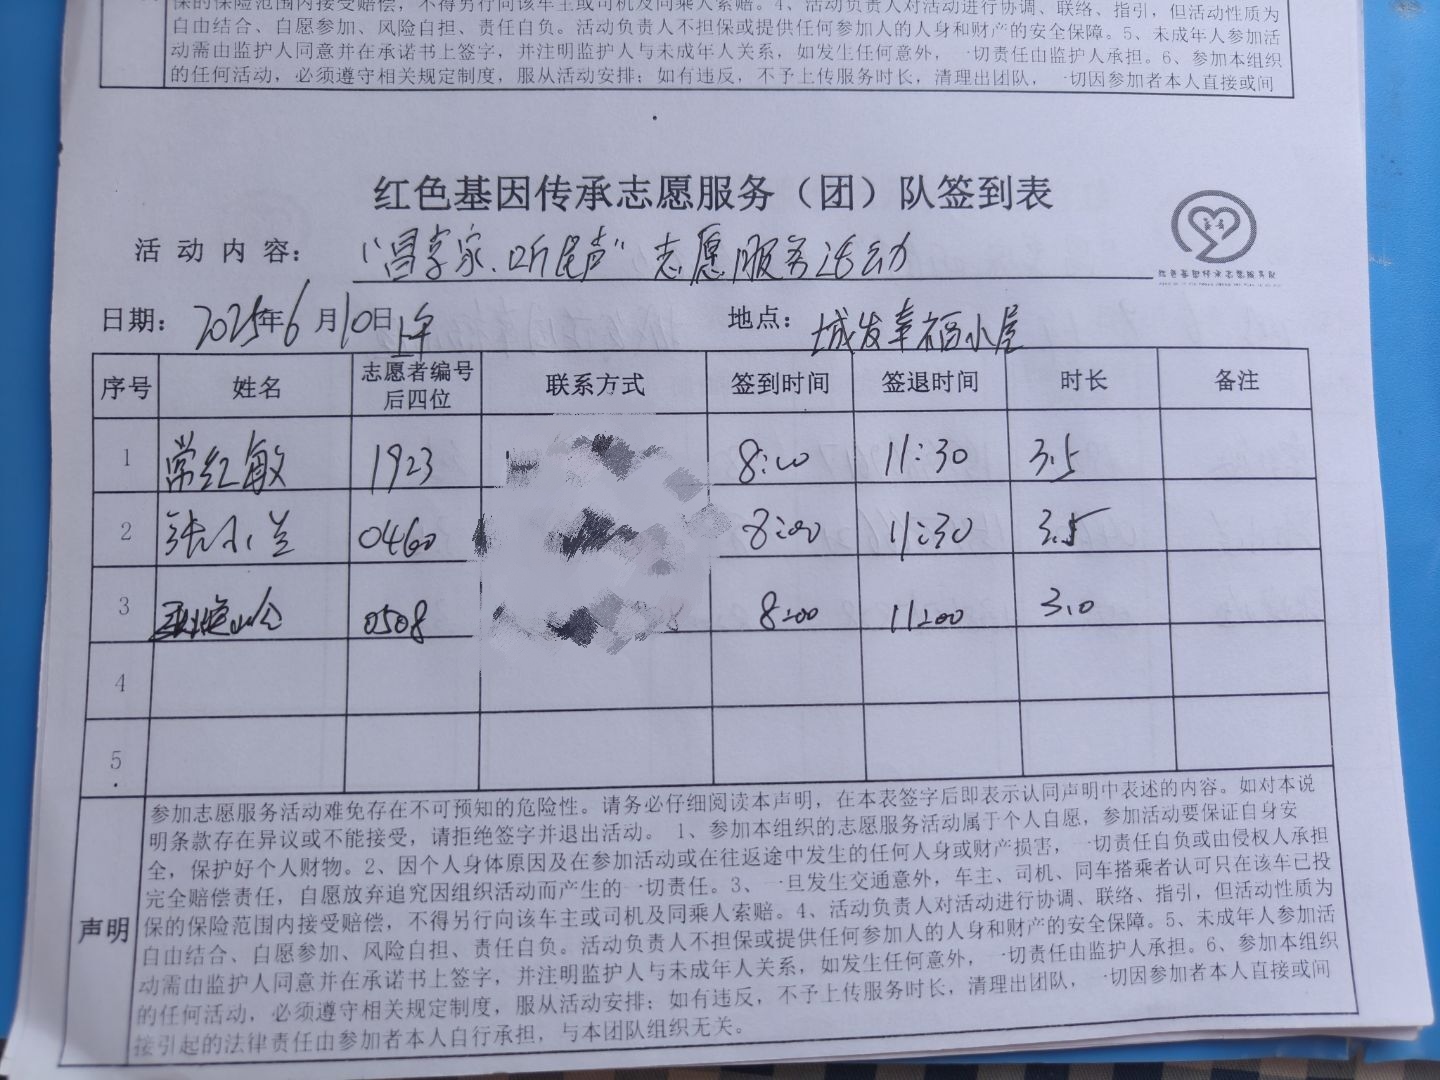 保的保险范围内接受赔偿，不得另行向该车主或司机及同乘人索赔。4、活动负责人对活动进行协调、联络、指引，但活动性质为
自由结合、自愿参加、风险自担、责任自负。活动负责人不担保或提供任何参加人的人身和财产的安全保障。5、未成年人参加活
动需由监护人同意并在承诺书上签字，并注明监护人与未成年人关系，如发生任何意外，一切责任由监护人承担。6、参加本组织
的任何活动，必须遵守相关规定制度，服从活动安排；如有违反，不予上传服务时长，清理出团队，一切因参加者本人直接或间
红色基因传承志愿服务（团）队签到表
活动内容： 志愿服务活动
日期：2025年6月10日上午 地点：城发幸福小屋
序号 姓名 志愿者编号后四位 联系方式 签到时间 签退时间 时长 备注
1 常红敏 1923 8:00 11:30 3.5
2 张小兰 0460 8:00 11:30 3.5
3 0508 8:00 11:00 3.0
4
5
声明
参加志愿服务活动难免存在不可预知的危险性。请务必仔细阅读本声明，在本表签字后即表示认同声明中表述的内容。如对本说
明条款存在异议或不能接受，请拒绝签字并退出活动。1、参加本组织的志愿服务活动属于个人自愿，参加活动要保证自身安
全，保护好个人财物。2、因个人身体原因及在参加活动或在往返途中发生的任何人身或财产损害，一切责任自负或由侵权人承担
完全赔偿责任，自愿放弃追究因组织活动而产生的一切责任。3、一旦发生交通意外，车主、司机、同车搭乘者认可只在该车已投
保的保险范围内接受赔偿，不得另行向该车主或司机及同乘人索赔。4、活动负责人对活动进行协调、联络、指引，但活动性质为
自由结合、自愿参加、风险自担、责任自负。活动负责人不担保或提供任何参加人的人身和财产的安全保障。5、未成年人参加活
动需由监护人同意并在承诺书上签字，并注明监护人与未成年人关系，如发生任何意外，一切责任由监护人承担。6、参加本组织
的任何活动，必须遵守相关规定制度，服从活动安排；如有违反，不予上传服务时长，清理出团队，一切因参加者本人直接或间
接引起的法律责任由参加者本人自行承担，与本团队组织无关。